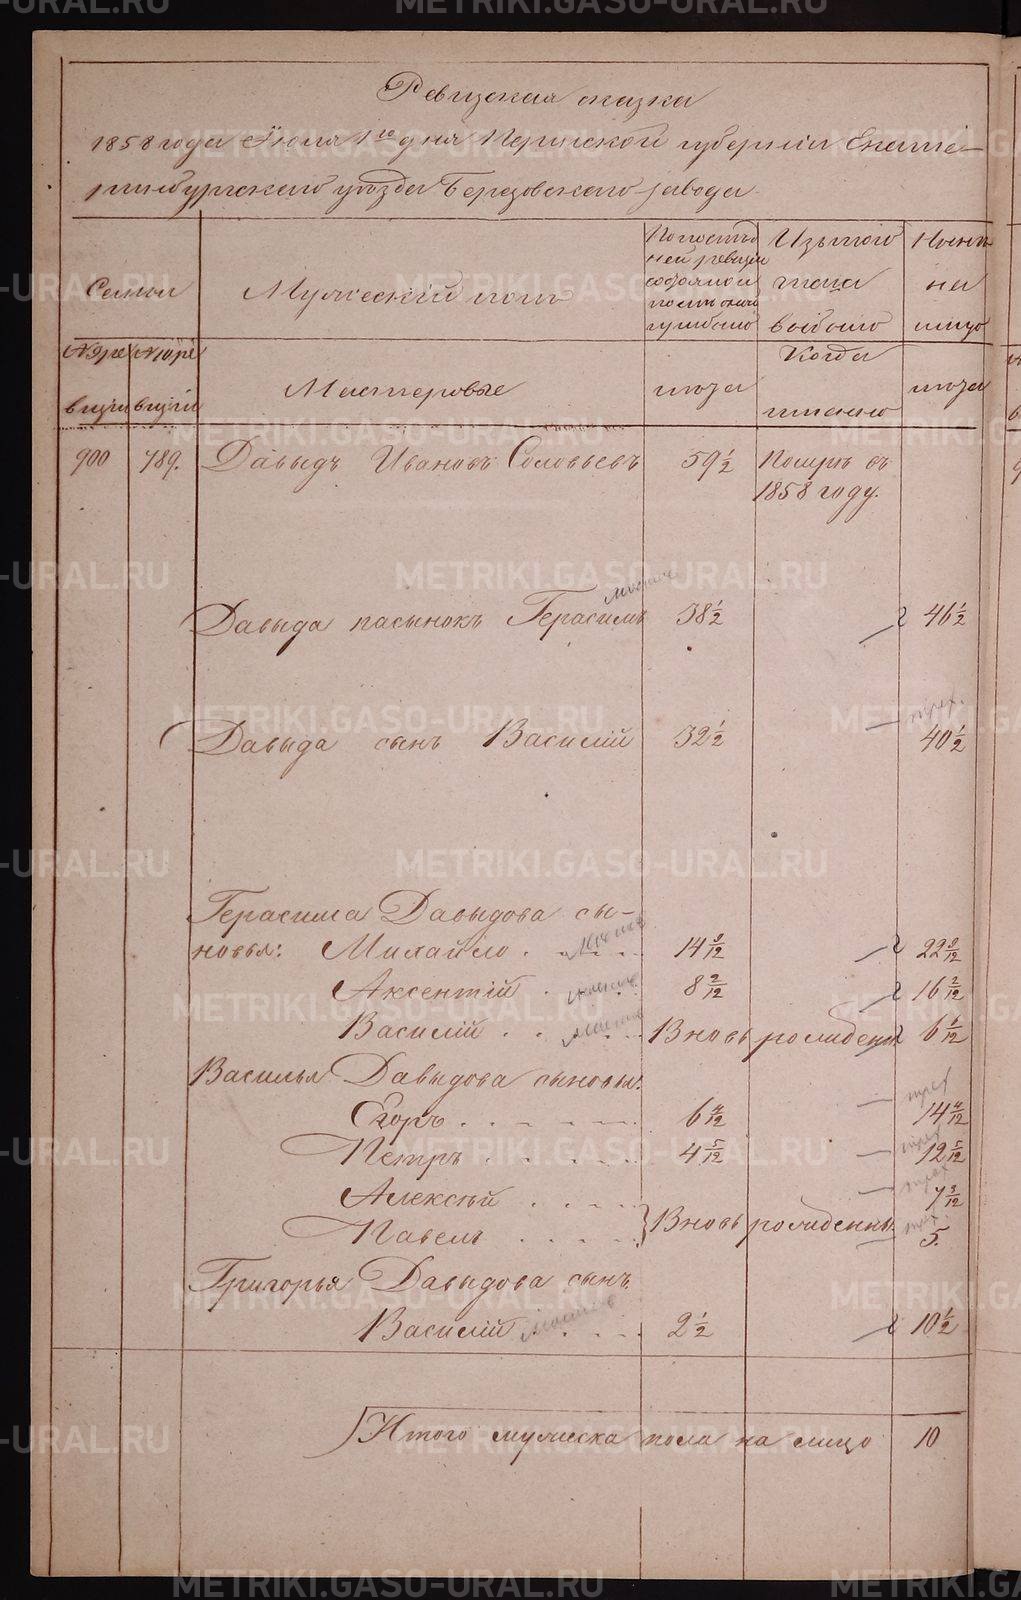 METRIKI.GASO-URAL.RU
Ревизская сказка
1858 года Июня 1го дня Пермской губерніи Екате-
ринбургскаго уѣзда Березовскаго завода
Семьи
Мужескій полъ
По послѣд
ней ревизіи
состояло и
послѣ оной
прибыло
Изъ того
числа
выбыло
Нынѣ
на
лицо
№ 9 ре
визіи
№ 10 ре
визіи
Мастеровые
лѣта
Когда
именно
лѣта
900 789. Давыдъ Ивановъ Соловьевъ 59 1/2 Померъ въ
1858 году.
Давыда пасынокъ Герасимъ 38 1/2 46 1/2
Давыда сынъ Василій 32 1/2 40 1/2
Герасима Давыдова сы-
новья: Михайло 14 8/12 22 8/12
Аксентій 8 2/12 16 2/12
Василій Вновь рожденъ 6 6/12
Василья Давыдова сыновья:
Егоръ 6 4/12 14 4/12
Петръ 4 5/12 12 5/12
Алексѣй 7 3/12
Павелъ Вновь рожденны. 5.
Григорья Давыдова сынъ
Василій 2 1/2 10 1/2
Итого мужеска пола на лицо 10